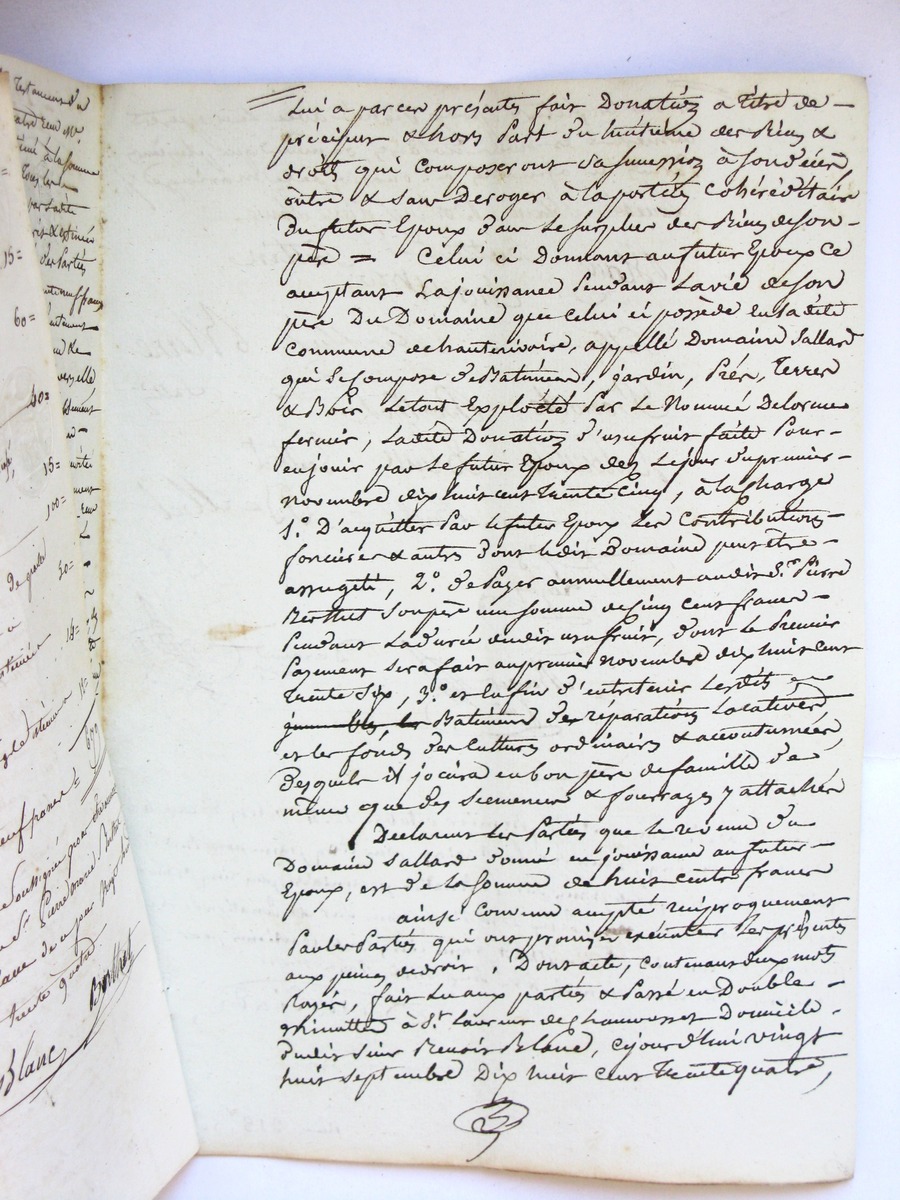 Lui a par ces présentes fait Donation a titre de —
préciput & hors part du huitième des Biens &
droits qui composeront sa succession à son décès
outre & sans Deroger à la portion Cohéréditaire
du futur Epoux dans le surplus des Biens de son —
père = Celui ci Donnant au futur Epoux ce
acceptant La jouissance pendant La vie de son
père Du Domaine que celui ci possède en la dite
Commune de hauterivoire, appellé Domaine Sallard
qui se Compose de Batiments, jardin, Prés, Terres
& Bois Le tout Exploité par Le Nommé Delorme
fermier, La dite Donation d'usufruit faite pour —
en jouir par le futur Epoux dès Le jour du premier —
novembre dix huit cent trente Cinq, à la charge
1.º D'acquitter par le futur Epoux les Contributions —
foncieres & autres dont ledit Domaine peut être —
assugeti, 2.º de payer annuellement audit S.r Pierre
Berthet son père une somme de cinq cent francs —
pendant La durée dudit usufruit, dont Le premier
payement sera fait au premier novembre dix huit cent
trente Six, 3.º et Enfin d'entretenir Lesdits
Batiments des réparations Locatives,
et les fonds des Cultures ordinaires & accoutumées
desquels il jouira en bon père de famille de
même que des semences & fourrages y attachés
Declarent Les Parties que le revenu du
Domaine Sallard donné en jouissance au futur —
Epoux, est de la somme de huit cents francs
ainsi Convenu accepté réciproquement
Par les Parties qui ont promis exécuter Les présentes
aux peines de droit. Dont acte, contenant deux mots
rayés, fait Lu aux parties & Passé en Double —
minutte à S.t Laurent de Chamousset Domicile —
dudit sieur Benoit Blanc, cejourd'hui vingt
huit septembre Dix huit cent trente quatre,
15=
60=
60=
15=
100=
30=
15=
Testament d'u
à la somme
des Parties
neuf francs
Blanc
Berthet